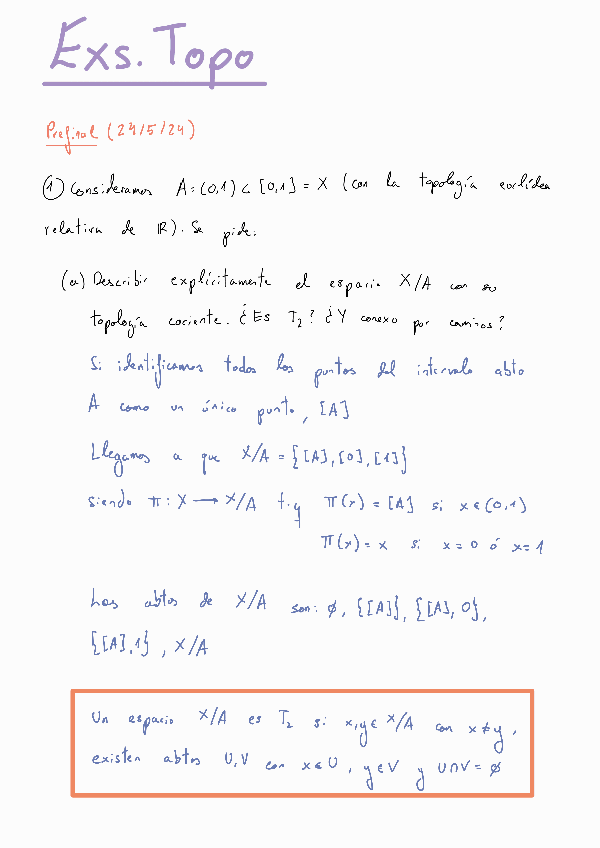 Exs. Topo
Prefinal (24/5/24)
① Consideramos A=(0,1) ⊂ [0,1] = X (con la topología euclídea
relativa de ℝ). Se pide:
(a) Describir explícitamente el espacio X/A con su
topología cociente. ¿Es T₂? ¿Y conexo por caminos?
Si identificamos todos los puntos del intervalo abto
A como un único punto, [A]
Llegamos a que X/A = {[A], [0], [1]}
siendo π: X → X/A t.q π(x) = [A] si x ∈ (0,1)
π(x) = x si x = 0 ó x = 1
Los abtos de X/A son: ∅, {[A]}, {[A], 0},
{[A], 1}, X/A
Un espacio X/A es T₂ si x,y ∈ X/A con x ≠ y,
existen abtos U,V con x ∈ U, y ∈ V y U∩V = ∅